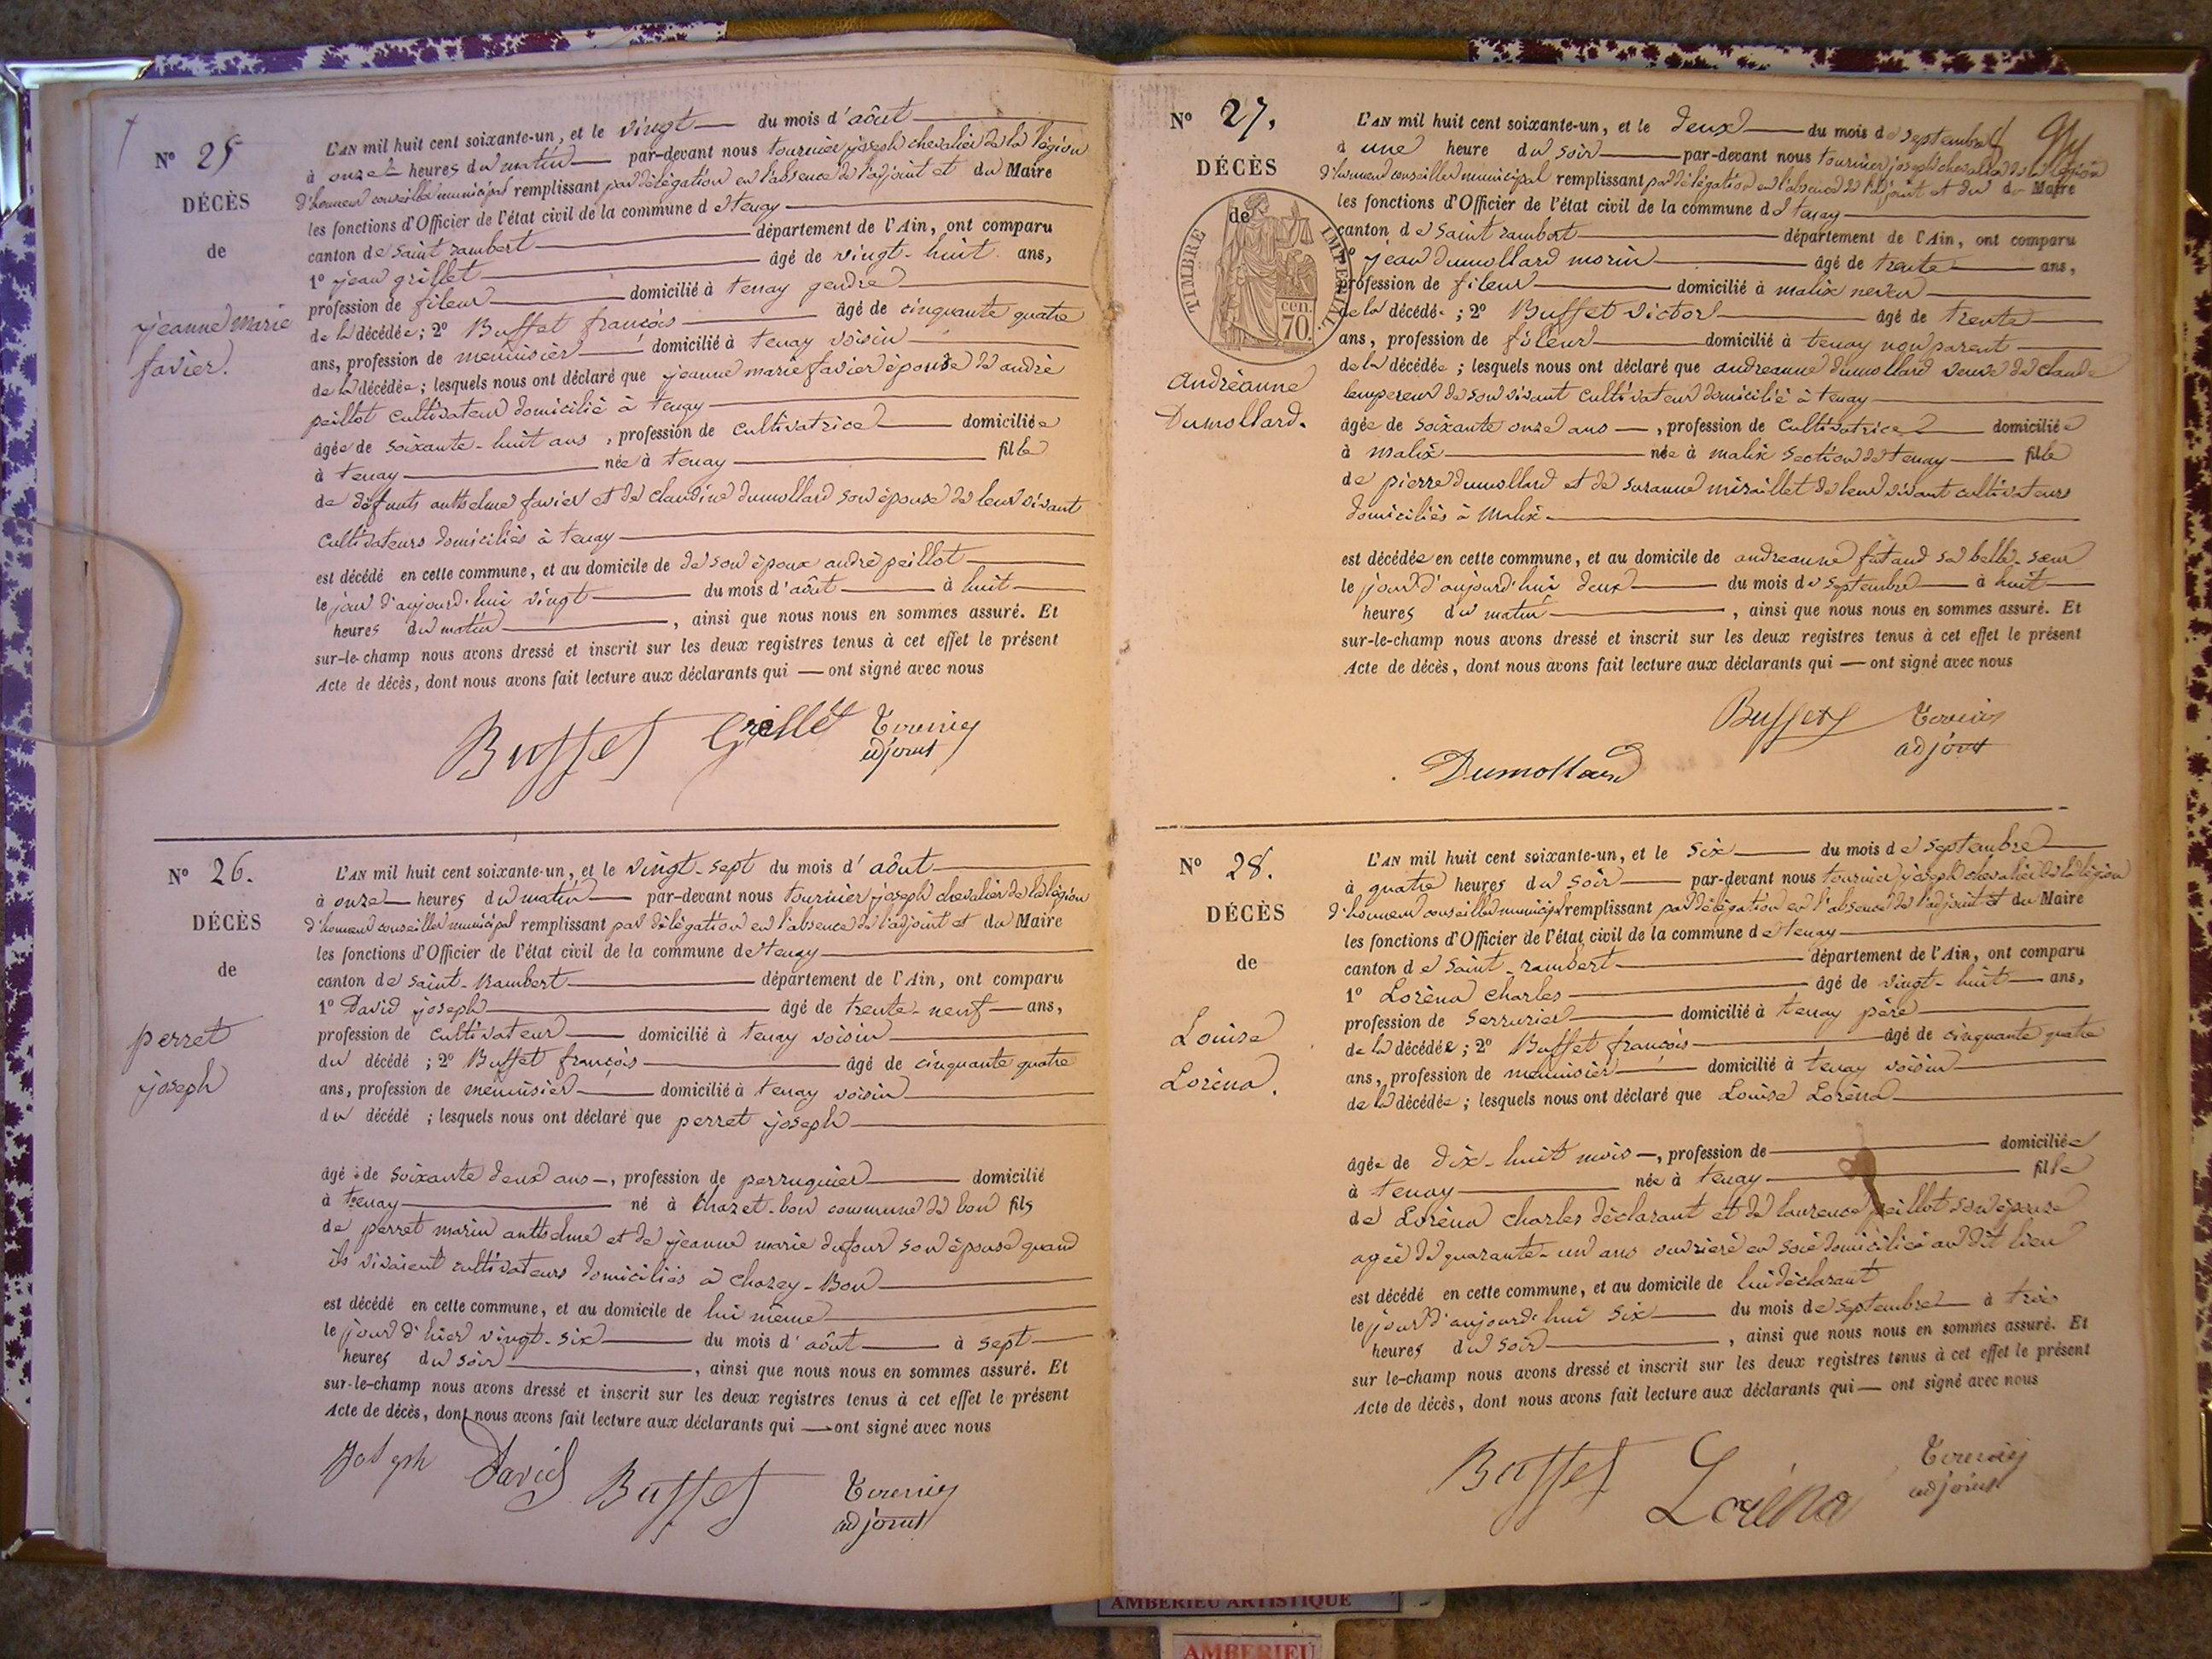 N° 25
DÉCÈS
de
jeanne marie
favier.
L'AN mil huit cent soixante-un, et le vingt du mois d'août
à onze heures du matin par-devant nous tournier joseph chevalier de la légion
d'honneur conseiller municipal remplissant par délégation en l'absence de l'adjoint et du Maire
les fonctions d'Officier de l'état civil de la commune de tenay
canton de saint rambert département de l'Ain, ont comparu
1° jean grillet âgé de vingt-huit ans,
profession de fileur domicilié à tenay gendre
de la décédée; 2° Buffet françois âgé de cinquante quatre
ans, profession de menuisier domicilié à tenay voisin
de la décédée; lesquels nous ont déclaré que jeanne marie favier épouse de andré
peillot cultivateur domicilié à tenay
âgée de soixante-huit ans, profession de cultivatrice domiciliée
à tenay née à tenay fille
de défunts anthelme favier et de claudine dumollard son épouse de leur vivant
cultivateurs domiciliés à tenay
est décédé en cette commune, et au domicile de de son époux andré peillot
le jour d'aujourd'hui vingt du mois d'août à huit
heures du matin, ainsi que nous nous en sommes assuré. Et
sur-le-champ nous avons dressé et inscrit sur les deux registres tenus à cet effet le présent
Acte de décès, dont nous avons fait lecture aux déclarants qui — ont signé avec nous
Buffet Grillet
adjoint
N° 26.
DÉCÈS
de
perret
joseph
L'AN mil huit cent soixante-un, et le vingt-sept du mois d'août
à onze heures du matin par-devant nous tournier joseph chevalier de la légion
d'honneur conseiller municipal remplissant par délégation en l'absence de l'adjoint et du Maire
les fonctions d'Officier de l'état civil de la commune de tenay
canton de saint-Rambert département de l'Ain, ont comparu
1° David joseph âgé de trente-neuf ans,
profession de cultivateur domicilié à tenay voisin
du décédé; 2° Buffet françois âgé de cinquante quatre
ans, profession de menuisier domicilié à tenay voisin
du décédé; lesquels nous ont déclaré que perret joseph
âgé de soixante deux ans, profession de perruquier domicilié
à tenay né à Chazet-bon commune de bon fils
de perret marin anthelme et de jeanne marie dufour son épouse quand
ils vivaient cultivateurs domiciliés à chazey-Bon
est décédé en cette commune, et au domicile de lui même
le jour d'hier vingt-six du mois d'août à sept
heures du soir, ainsi que nous nous en sommes assuré. Et
sur-le-champ nous avons dressé et inscrit sur les deux registres tenus à cet effet le présent
Acte de décès, dont nous avons fait lecture aux déclarants qui — ont signé avec nous
Joseph David Buffet
adjoint
N° 27.
DÉCÈS
de
TIMBRE IMPÉRIAL
70 cen.
andréanne
Dumollard.
L'AN mil huit cent soixante-un, et le deux du mois de septembre
à une heure du soir par-devant nous tournier joseph chevalier de la légion
d'honneur conseiller municipal remplissant par délégation en l'absence de l'adjoint et du d Maire
les fonctions d'Officier de l'état civil de la commune de tenay
canton de saint rambert département de l'Ain, ont comparu
1° jean dumollard morin âgé de trente ans,
profession de fileur domicilié à malix neveu
de la décédée; 2° Buffet victor âgé de trente
ans, profession de fileur domicilié à tenay non parent
de la décédée; lesquels nous ont déclaré que andreanne dumollard veuve de claude
lempereur de son vivant cultivateur domicilié à tenay
âgée de soixante onze ans, profession de cultivatrice domiciliée
à malix née à malix section de tenay fille
de pierre dumollard et de suzanne miraillet de leur vivant cultivateurs
domiciliés à Malix
est décédée en cette commune, et au domicile de andreanne sa belle-sœur
le jour d'aujourd'hui deux du mois de septembre à huit
heures du matin, ainsi que nous nous en sommes assuré. Et
sur-le-champ nous avons dressé et inscrit sur les deux registres tenus à cet effet le présent
Acte de décès, dont nous avons fait lecture aux déclarants qui — ont signé avec nous
Buffet
adjoint
Dumollard
N° 28.
DÉCÈS
de
Louise
Loréna.
L'AN mil huit cent soixante-un, et le six du mois de septembre
à quatre heures du soir par-devant nous tournier joseph chevalier de la légion
d'honneur conseiller municipal remplissant par délégation en l'absence de l'adjoint et du Maire
les fonctions d'Officier de l'état civil de la commune de tenay
canton de saint-rambert département de l'Ain, ont comparu
1° Loréna charles âgé de vingt-huit ans,
profession de serrurier domicilié à tenay père
de la décédée; 2° Buffet françois âgé de cinquante quatre
ans, profession de menuisier domicilié à tenay voisin
de la décédée; lesquels nous ont déclaré que Louise Loréna
âgée de dix-huit mois, profession de domiciliée
à tenay née à tenay fille
de Loréna charles déclarant et de laurence peillot son épouse
agée de quarante-un ans ouvrière en soie domiciliée au dit lieu
est décédé en cette commune, et au domicile de lui déclarant
le jour d'aujourd'hui six du mois de septembre à trois
heures du soir, ainsi que nous nous en sommes assuré. Et
sur le-champ nous avons dressé et inscrit sur les deux registres tenus à cet effet le présent
Acte de décès, dont nous avons fait lecture aux déclarants qui — ont signé avec nous
Buffet Loréna
adjoint
AMBERIEU ARTISTIQUE
AMBERIEU